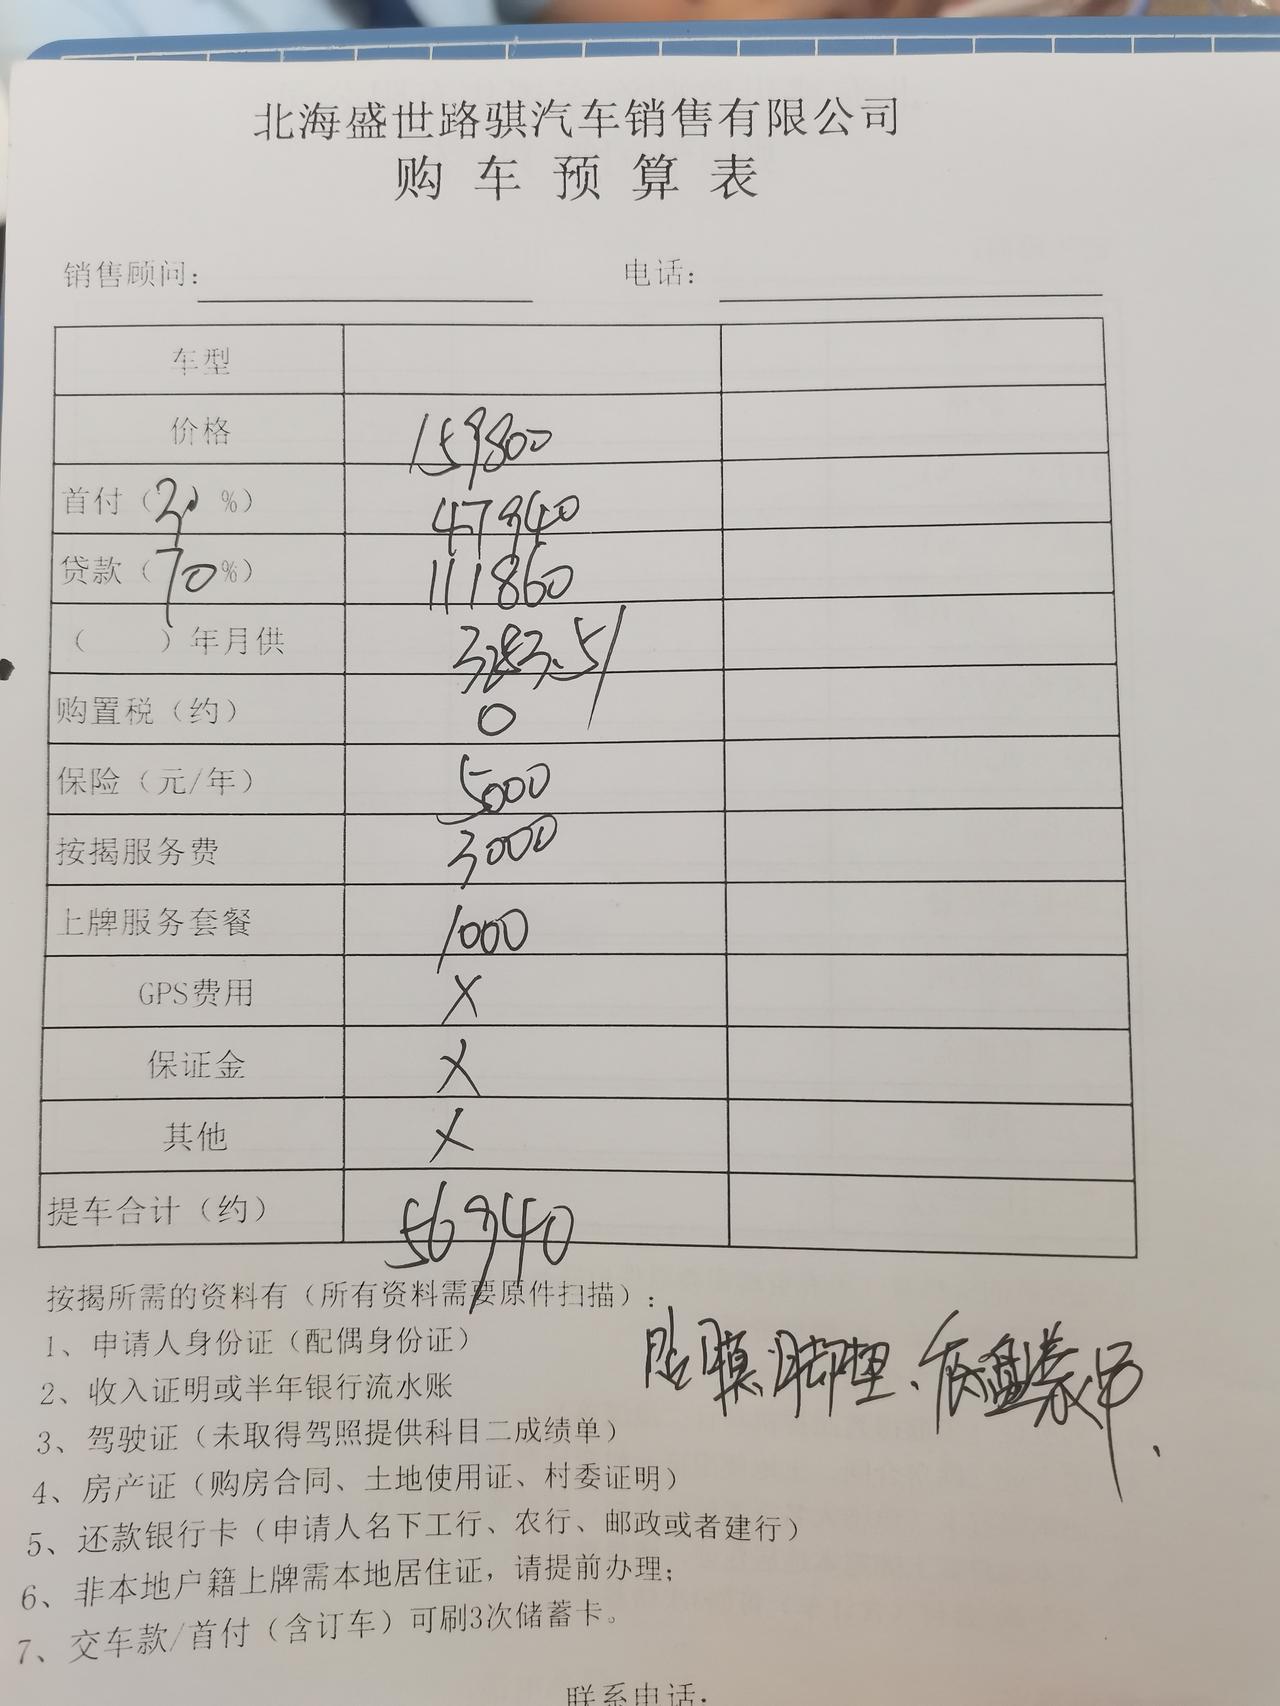 北海盛世路骐汽车销售有限公司
购车预算表
销售顾问: 电话:
车型
价格 159800
首付(30%) 47940
贷款(70%) 111860
( )年月供 3283.51
购置税(约) 0
保险(元/年) 5000
按揭服务费 3000
上牌服务套餐 1000
GPS费用 X
保证金 X
其他 X
提车合计(约) 56940
按揭所需的资料有(所有资料需要原件扫描):
1、申请人身份证(配偶身份证)
2、收入证明或半年银行流水账
贴膜、脚垫、底盘装甲、
3、驾驶证(未取得驾照提供科目二成绩单)
4、房产证(购房合同、土地使用证、村委证明)
5、还款银行卡(申请人名下工行、农行、邮政或者建行)
6、非本地户籍上牌需本地居住证,请提前办理;
7、交车款/首付(含订车)可刷3次储蓄卡。
联系电话: